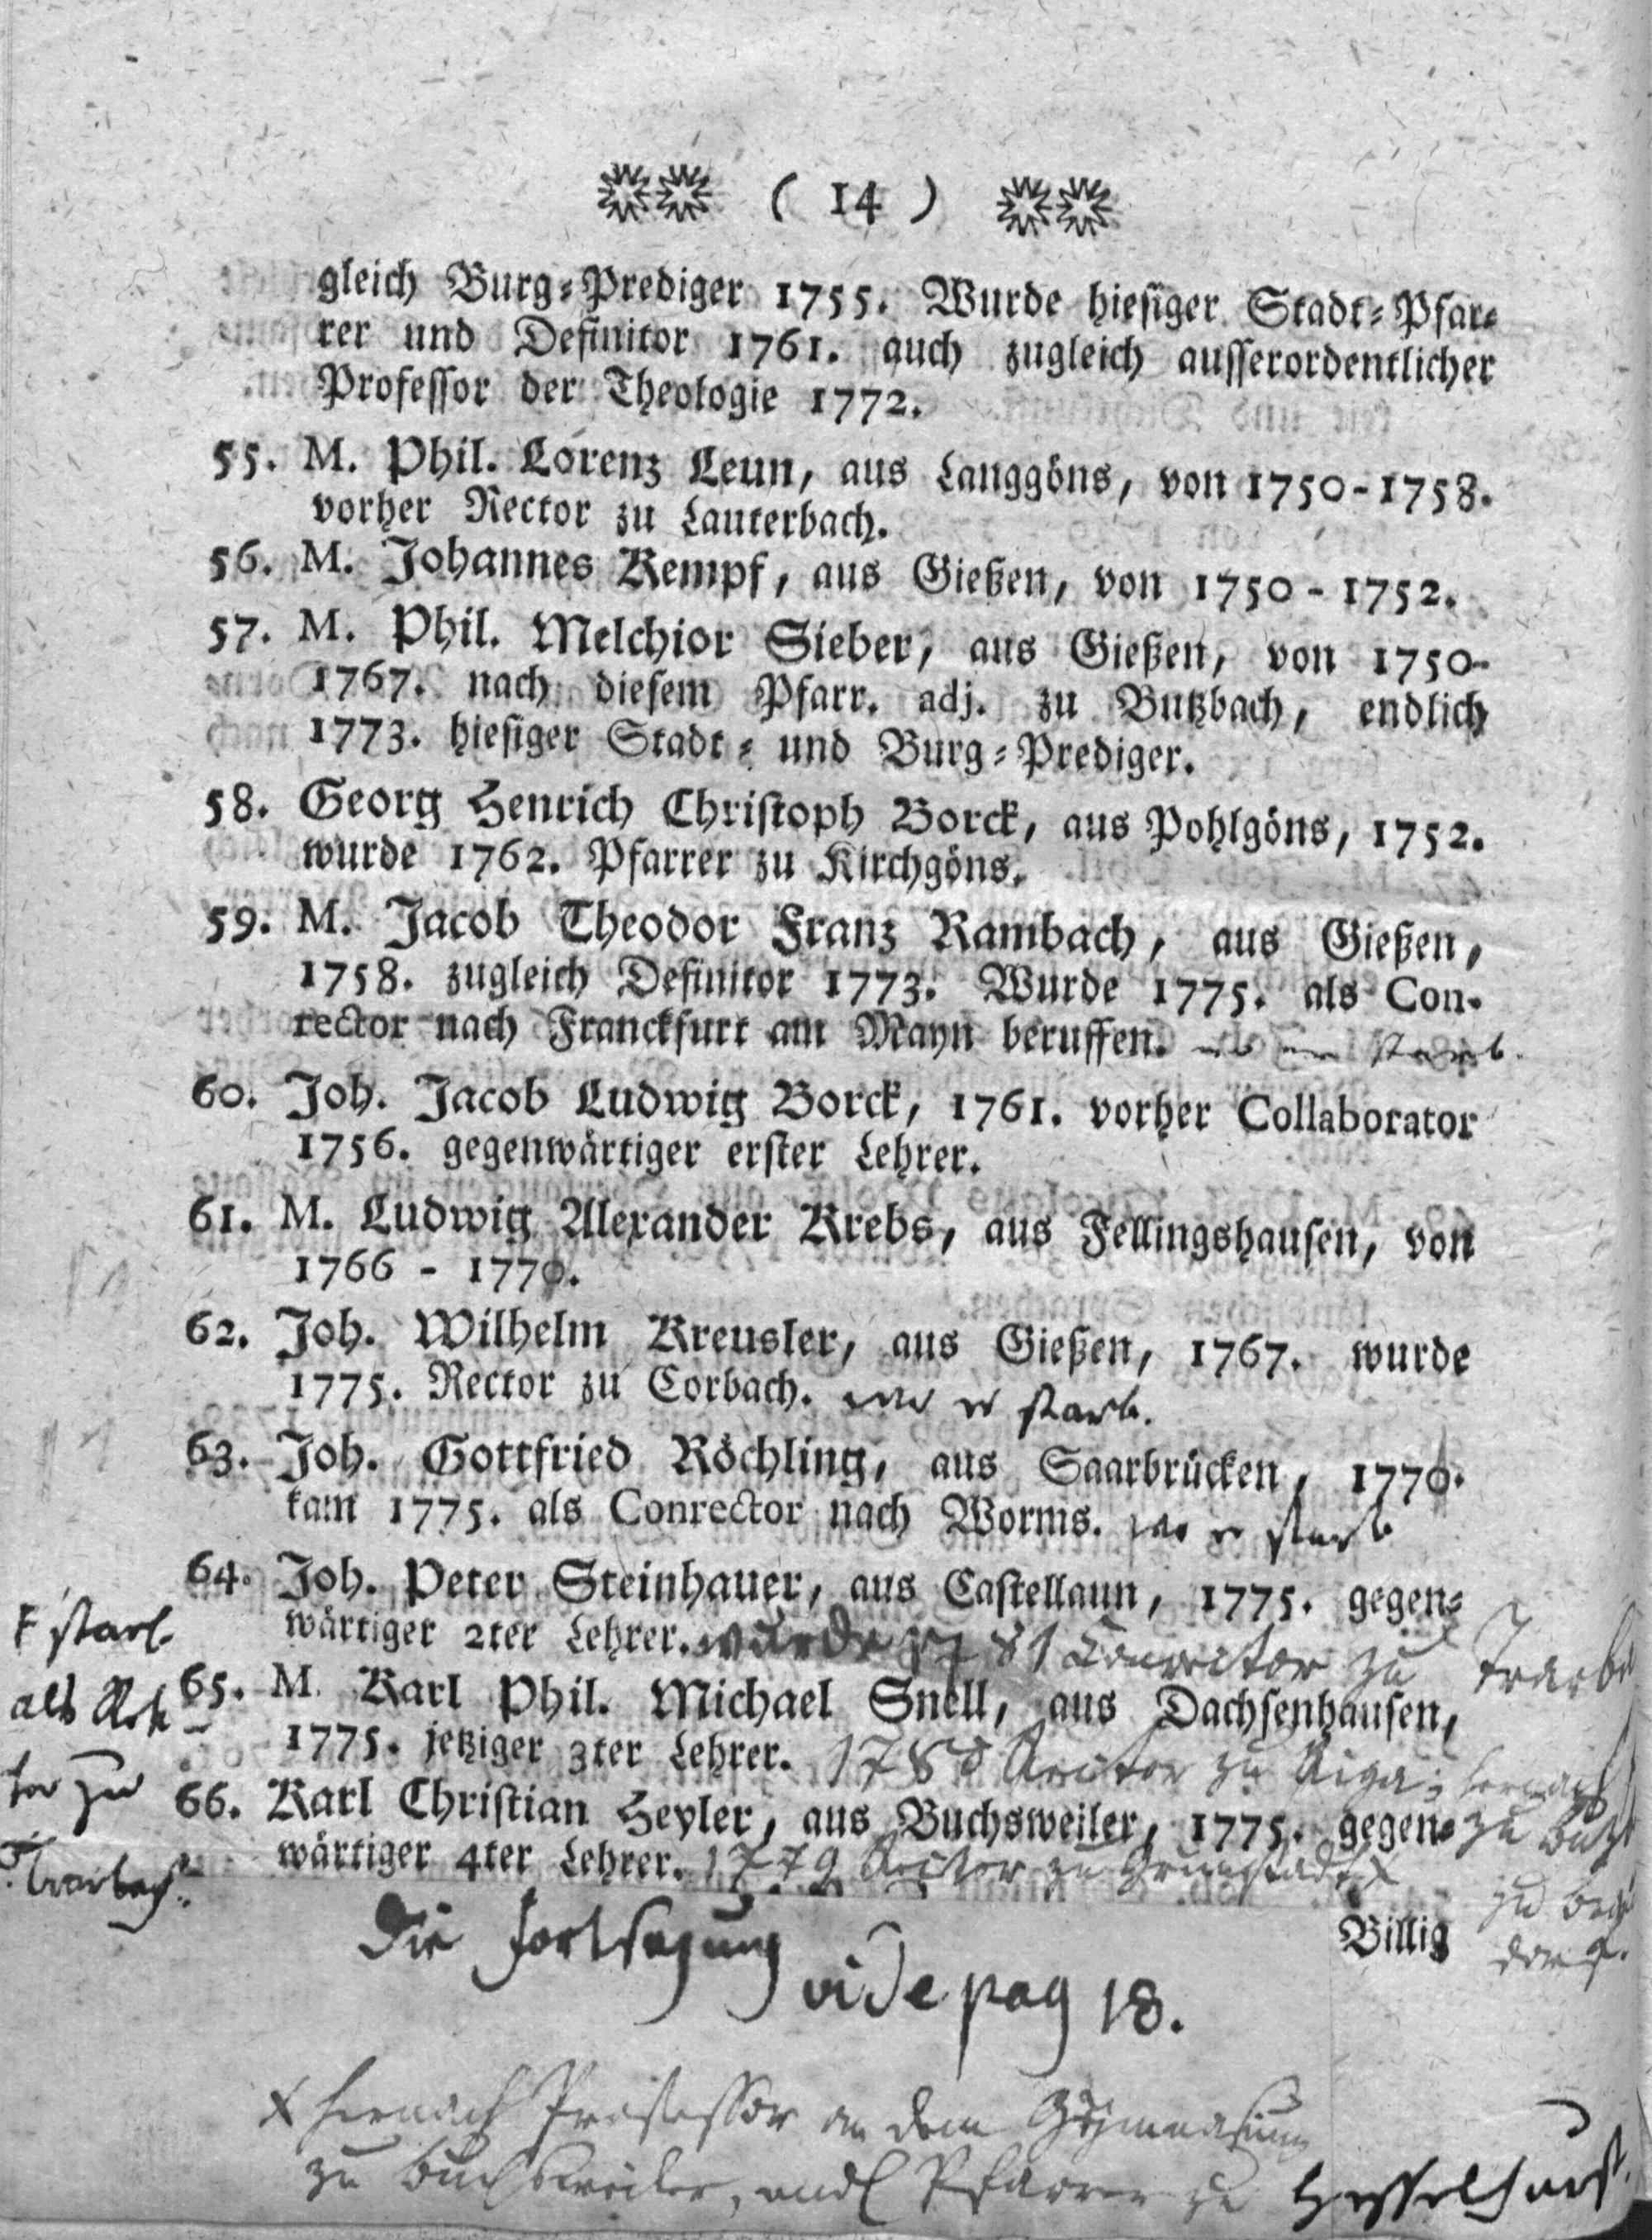 ( 14 )
gleich Burg-Prediger 1755. Wurde hiesiger Stadt-Pfar-
rer und Definitor 1761. auch zugleich ausserordentlicher
Professor der Theologie 1772.
55. M. Phil. Lorenz Leun, aus Langgöns, von 1750-1758.
vorher Rector zu Lauterbach.
56. M. Johannes Kempf, aus Gießen, von 1750-1752.
57. M. Phil. Melchior Sieber, aus Gießen, von 1750-
1767. nach diesem Pfarr. adj. zu Butzbach, endlich
1773. hiesiger Stadt- und Burg-Prediger.
58. Georg Henrich Christoph Borck, aus Pohlgöns, 1752.
wurde 1762. Pfarrer zu Kirchgöns.
59. M. Jacob Theodor Franz Rambach, aus Gießen,
1758. zugleich Definitor 1773. Wurde 1775. als Con-
rector nach Franckfurt am Mayn beruffen. wo er starb.
60. Joh. Jacob Ludwig Borck, 1761. vorher Collaborator
1756. gegenwärtiger erster Lehrer.
61. M. Ludwig Alexander Krebs, aus Fellingshausen, von
1766 - 1770.
62. Joh. Wilhelm Kreusler, aus Gießen, 1767. wurde
1775. Rector zu Corbach. wo er starb.
63. Joh. Gottfried Röchling, aus Saarbrücken, 1770.
kam 1775. als Conrector nach Worms. wo er starb
64. Joh. Peter Steinhauer, aus Castellaun, 1775. gegen-
wärtiger 2ter Lehrer. wurde 1781 Conrector zu Trarba
starb
als Rek
tor zu
Trarbach.
65. M. Karl Phil. Michael Snell, aus Dachsenhausen,
1775. jetziger 3ter Lehrer. 1780 Rector zu Riga; hernach
zu
zu
66. Karl Christian Heyler, aus Buchsweiler, 1775. gegen-
wärtiger 4ter Lehrer. 1779 Rector zu Grünstadt x
Billig
Die Fortsezung
vide pag 18.
x hernach Professor an dem Gymnasium
zu Buchsweiler, und Pfarrer zu Hesselhurst.